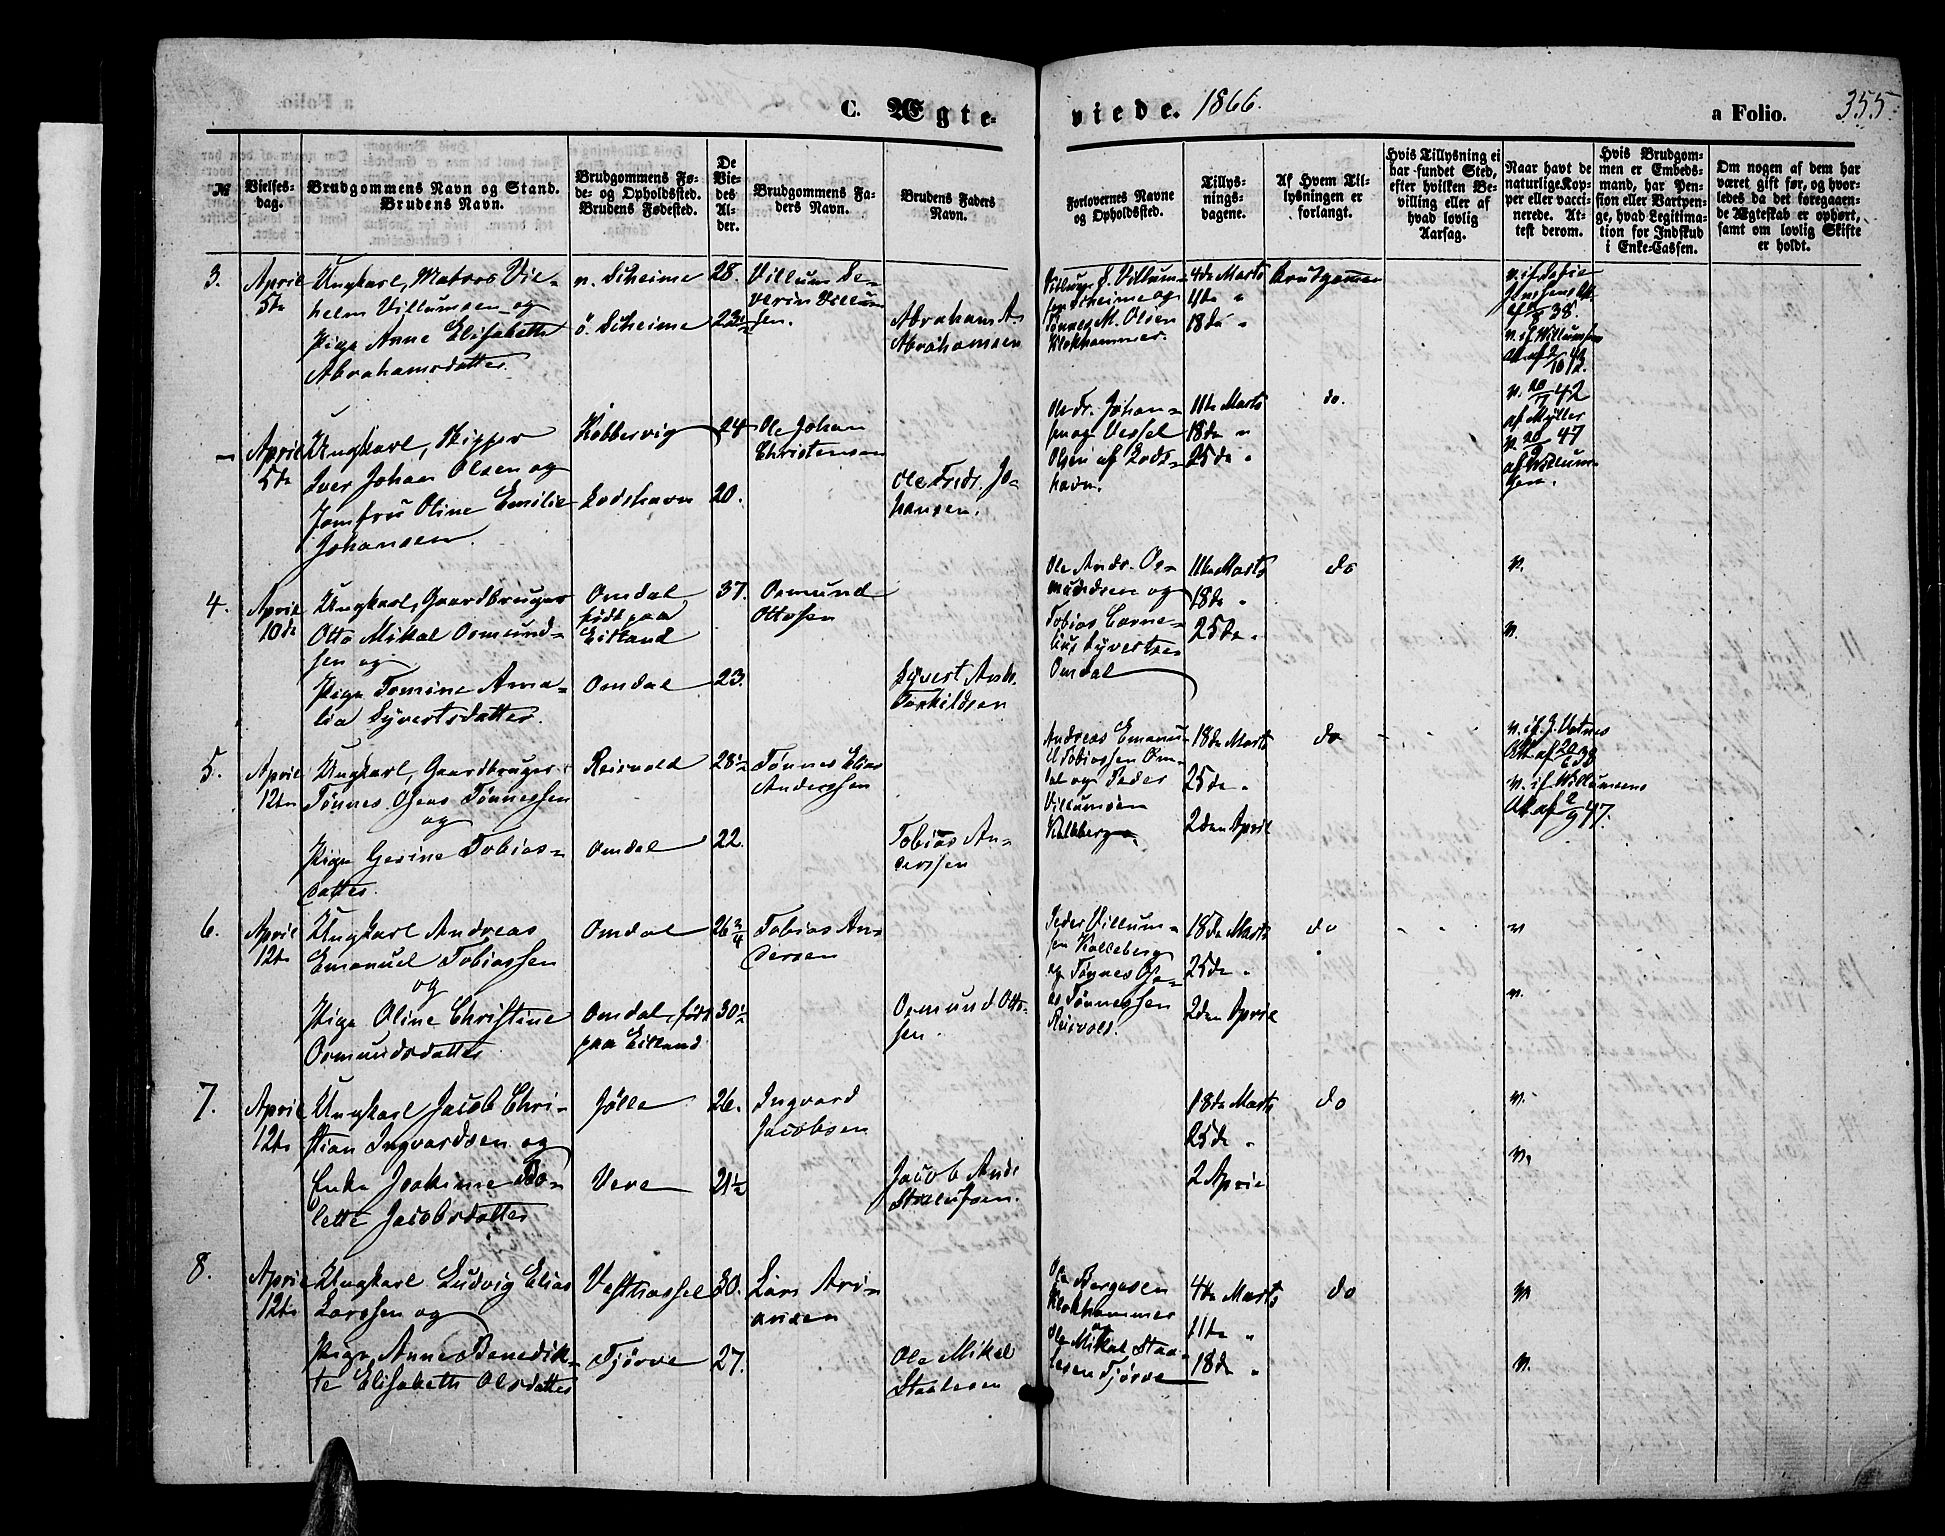 C. Ægte- viede. 1866. a Folio. 355.
№
Vielses-
dag.
Brudgommens Navn og Stand.
Brudens Navn.
Brudgommens Fø-
de- og Opholdssted.
Brudens Fødested.
De
Vie-
des
Al-
der.
Brudgommens Fa-
ders Navn.
Brudens Faders
Navn.
Forlovernes Navne
og Opholdssted.
Tillys-
nings-
dagene.
Af Hvem Til-
lysningen er
forlangt.
Hvis Tillysning ei
har fundet Sted,
efter hvilken Be-
villing eller af
hvad lovlig
Aarsag.
Naar havt de
naturlige Kop-
per eller vacci-
nerede. At-
test derom.
Hvis Brudgom-
men er Embeds-
mand, har Pen-
sion eller Vartpen-
ge, hvad Legitima-
tion for Indskud
i Enke-Cassen.
Om nogen af dem har
været gift før, og hvor-
ledes da det foregaaen-
de Ægteskab er ophørt,
samt om lovlig Skifte
er holdt.
3.
April
5te
Ungkarl, Matros Vil-
helm Villumsen og
Pige Anne Elisabeth
Abrahamsdatter.
n. Scheime
ö. Scheime
28.
23½
Villum Se-
verin Villum-
sen.
Abraham A.
Abrahamsen
Villum S. Villum-
sen Scheime og
Tønnes M. Olsen
Klokhammer.
4de Marts
11te "
18de "
Brudgommen
8 38.
v. if. Willumsens
Att af 2/10 42.
-
April
5te
Ungkarl, Skipper
Iver Johan Olsen og
Jomfru Oline Emilie
Johansen
Kobbervig
Lodshavn
24
20.
Ole Johan
Christensen
Ole Fredr. Jo-
hansen.
Ole Fr. Johan-
sen og Vessel
Olsen af Lods-
havn.
11te Marts
18de "
25de "
do.
v. 20/7 42
af Møller
v. 20/9 47
af Willum-
sen.
4.
April
10de
Ungkarl, Gaardbruger
Otto Mikal Osmund-
sen og
Pige Tomine Ama-
lia Syvertsdatter.
Omdal
født paa
Eitland
Omdal
37.
23.
Osmund
Ottosen
Syvert Andr.
Torkildsen
Ole Andr. Os-
mundsen og
Tobias Corne-
lius Syvertsen
Omdal
11te Marts
18de "
25de "
do
v.
v.
5.
April
12te
Ungkarl, Gaardbruger
Tønnes Oseas Tønnessen
og
Pige Gerine Tobias-
datter.
Reisvold
Omdal
28½
22.
Tønnes Elias
Anderssen
Tobias An-
derssen
Andreas Emanu-
el Tobiassen Om-
dal og Peder
Villumsen
Kalleberg
18de Marts
25de "
2den April
do
v. if. J. Vatnes
v. if Willumsens
Att af 2/9 47.
6.
April
12te
Ungkarl Andreas
Emanuel Tobiassen
og
Pige Oline Christine
Osmundsdatter
Omdal
Omdal, født
paa Eitland
26¾
30½
Tobias An-
dersen
Osmund Otto-
sen.
Peder Villum-
sen Kalleberg
og Tønnes Ose-
as Tønnessen
Reisvold.
18de Marts
25de "
2den April
do
v
v.
7.
April
12te
Ungkarl Jacob Chri-
stian Ingvardsen og
Enke Joakime Bo-
lette Jacobsdatter
Jølle
Vere
26.
21½
Ingvard
Jacobsen
Jacob Andr.
18de Marts
25de "
2 April
do
v.
v.
8.
April
12te
Ungkarl Ludvig Elias
Larssen og
Pige Anne Benedik-
te Elisabeth Olsdatter
Vesthassel
Tjørve
30.
27.
Lars Ari-
ansen
Ole Mikal
Staalesen
Ole Børgesen
Klokhammer
og
Ole Mikal Staa-
lesen Tjørve
4de Marts
11te "
18de "
do
v
v.